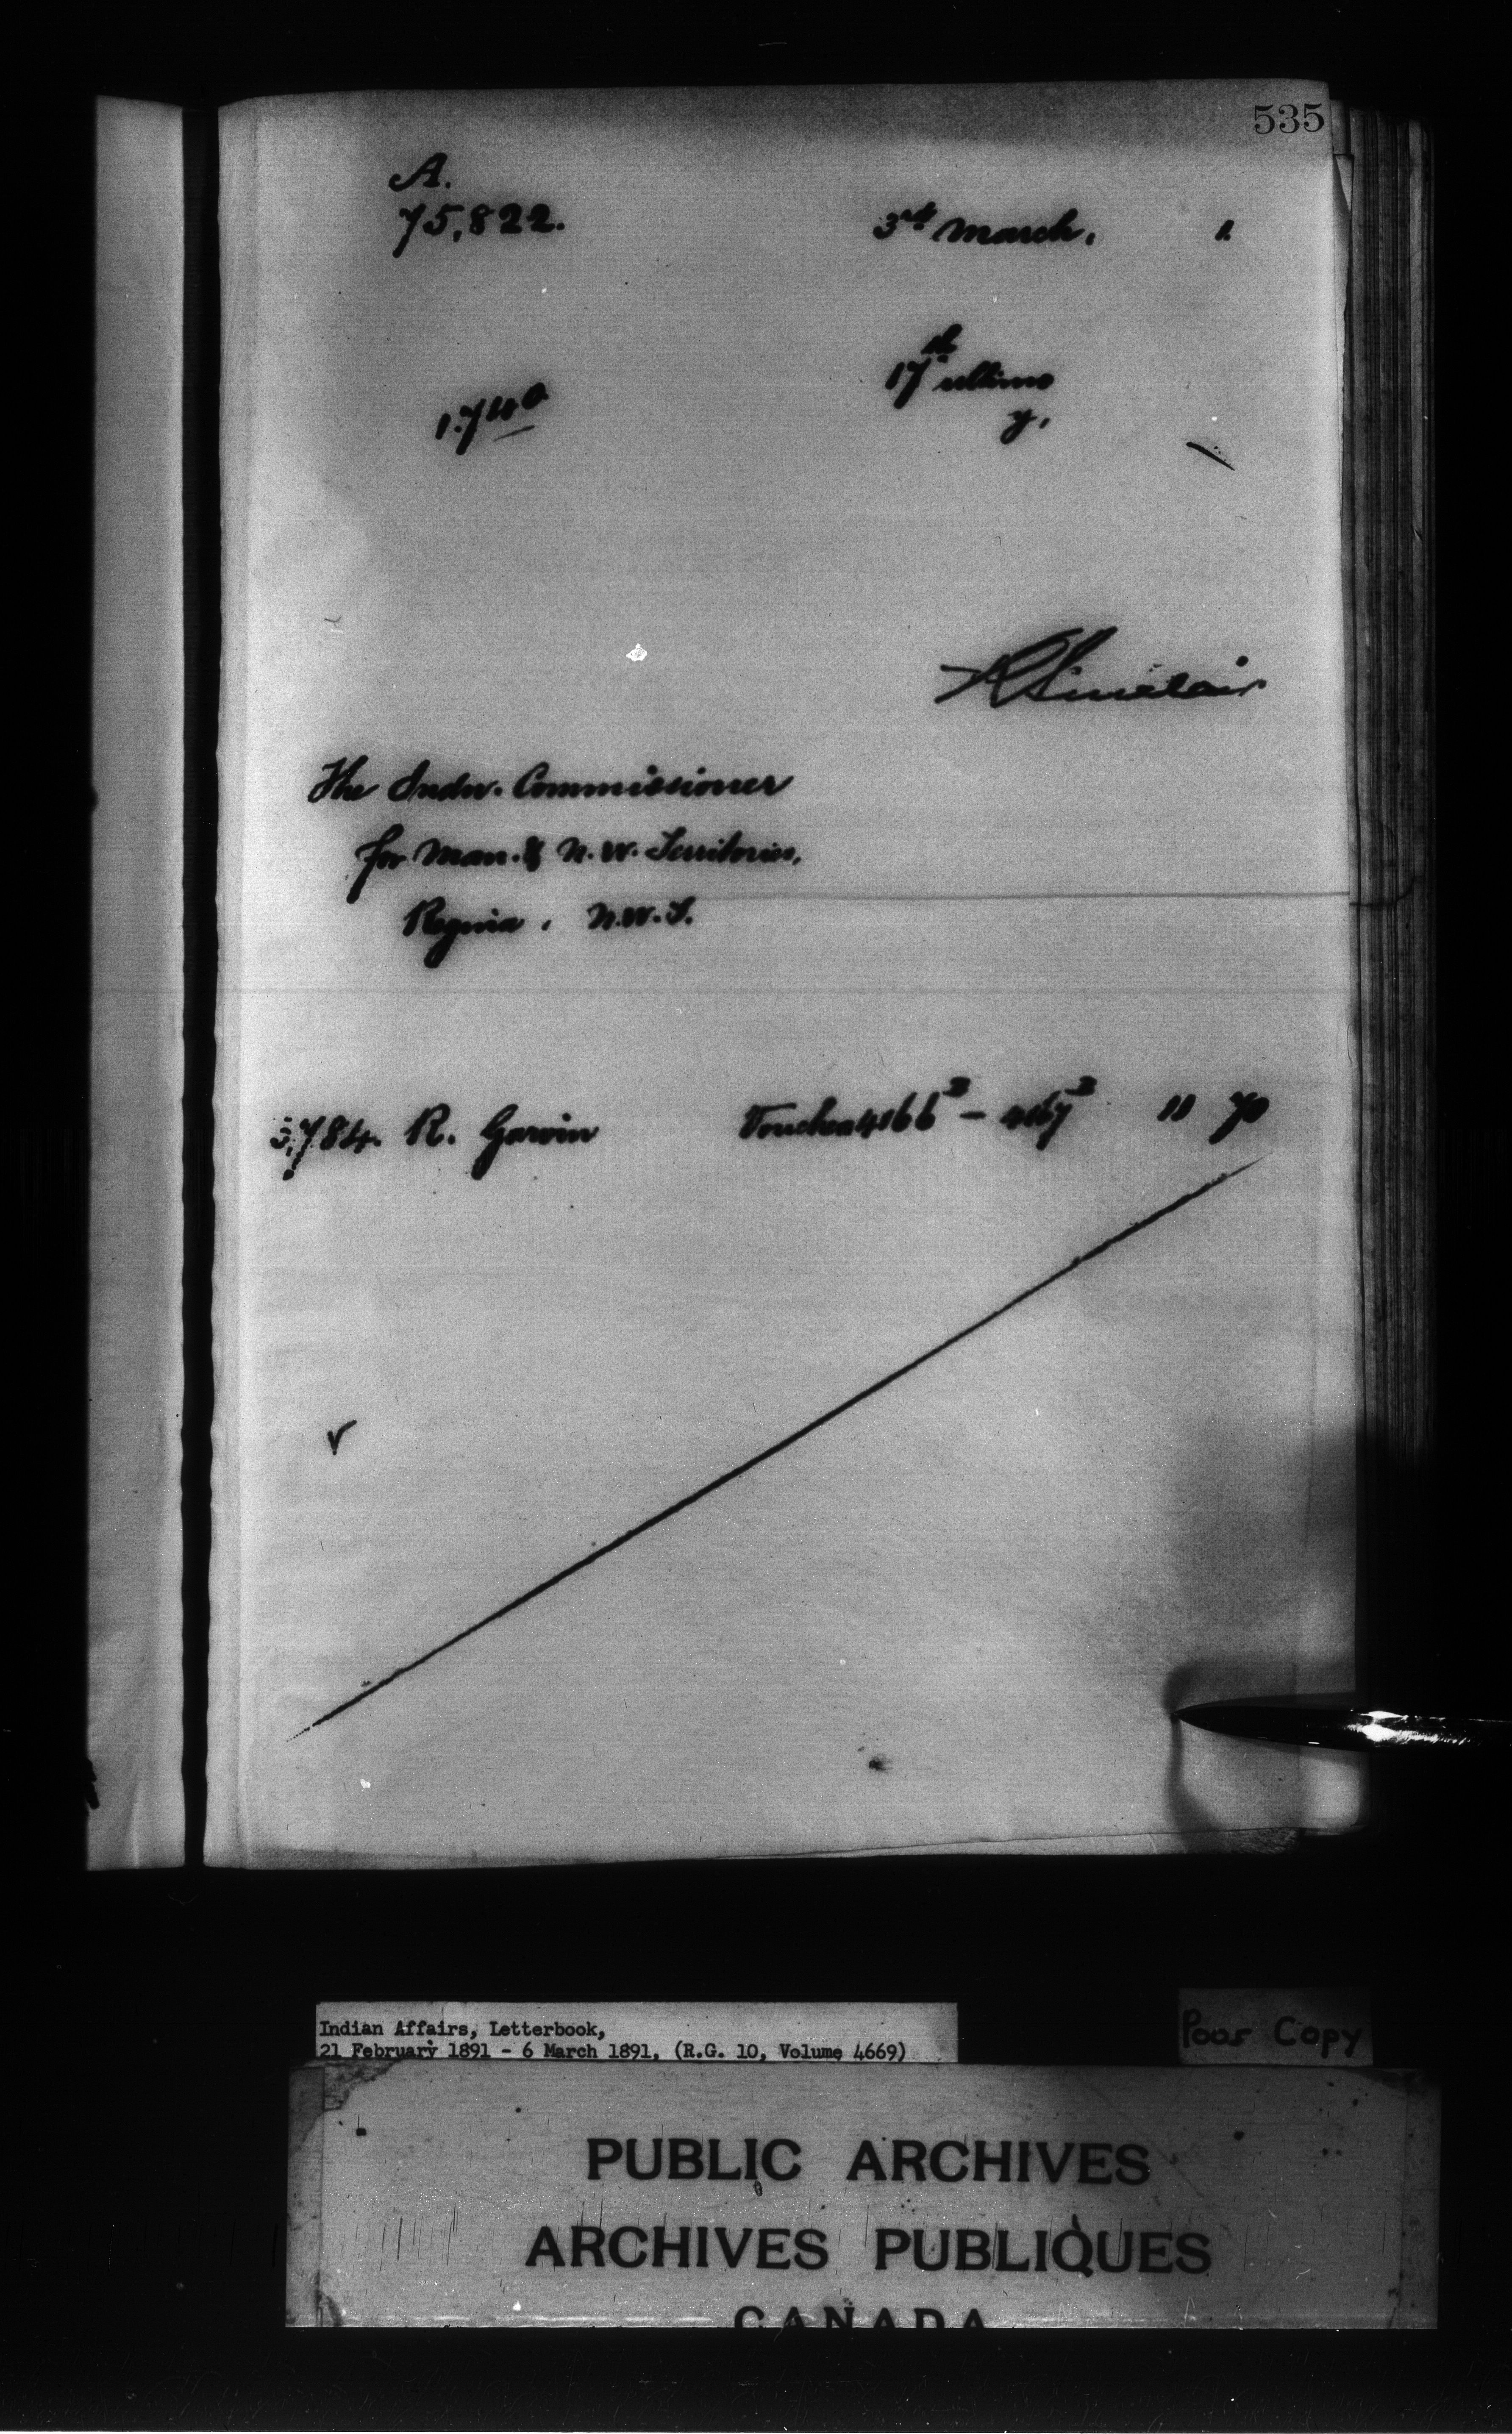 535
A.
75,822.
3rd March, 1.
17th ultimo
1.740
y,
R Sinclair
The Indn. Commissioner
for Man. & N.W. Territories,
Regina, N.W.T.
3,784. R. Garvin Voucher 4166 B - 4167 B 11 70
Indian Affairs, Letterbook,
21 February 1891 - 6 March 1891, (R.G. 10, Volume 4669)
Poor Copy
PUBLIC ARCHIVES
ARCHIVES PUBLIQUES
CANADA